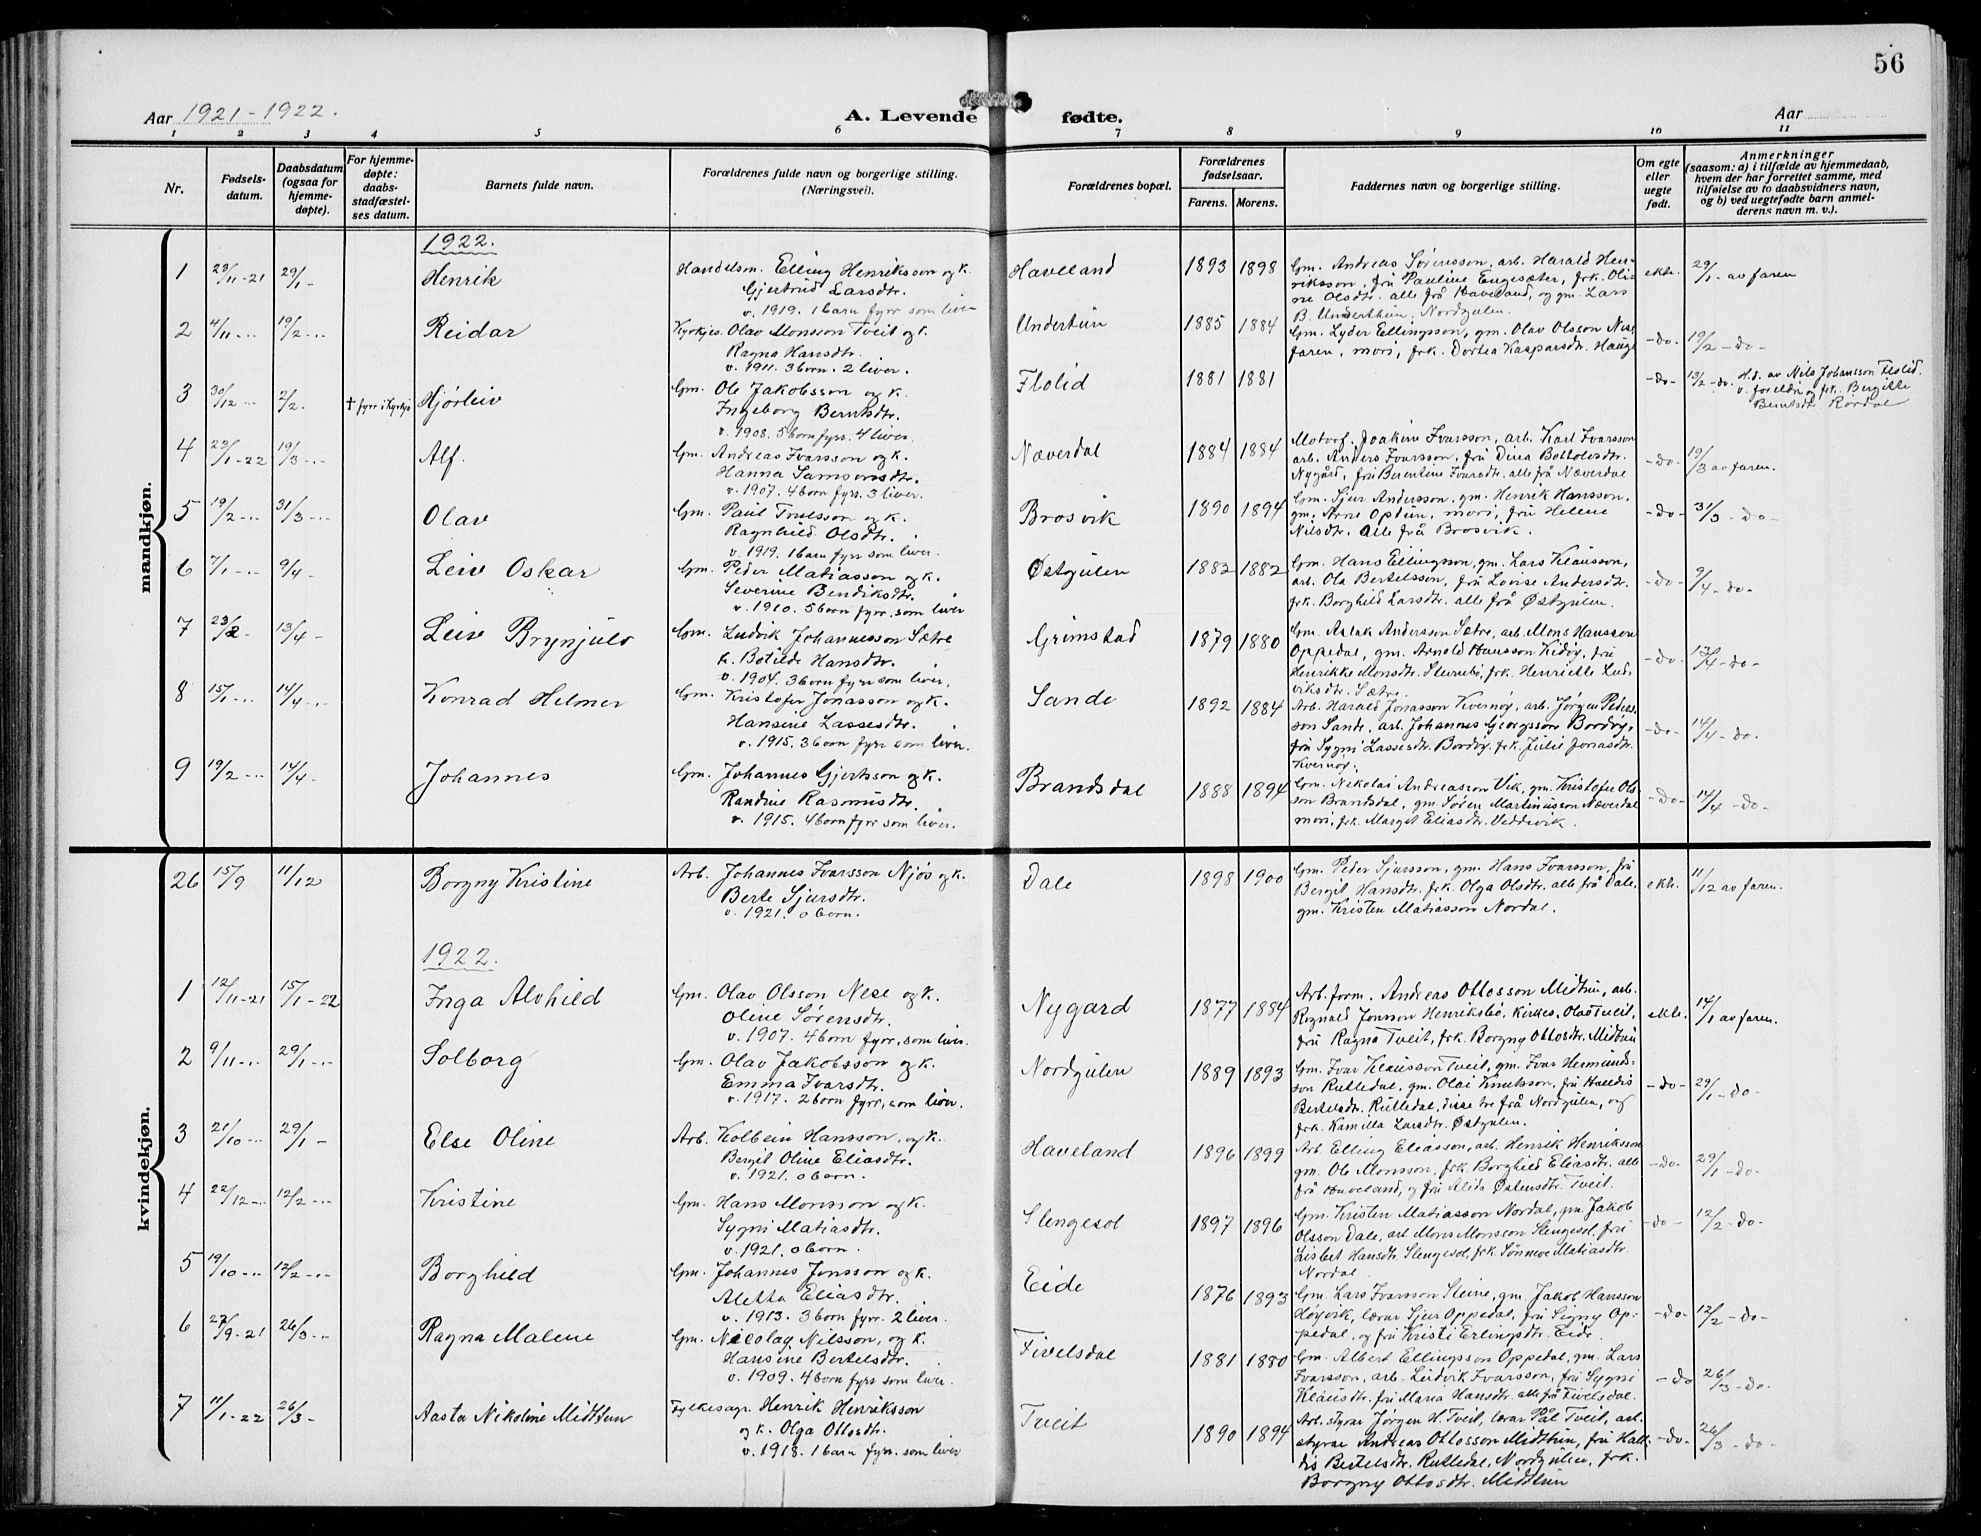 56
Aar 1921-1922.
A. Levende fødte.
Aar
1 2 3 4 5 6 7 8 9 10 11
Nr.
Fødsels-
datum.
Daabsdatum
(ogsaa for
hjemme-
døpte).
For hjemme-
døpte:
daabs-
stadfæstel-
ses datum.
Barnets fulde navn.
Forældrenes fulde navn og borgerlige stilling.
(Næringsvei).
Forældrenes bopæl.
Forældrenes
fødselsaar.
Farens. Morens.
Faddernes navn og borgerlige stilling.
Om egte
eller
uegte
født.
Anmerkninger
(saasom: a) i tilfælde av hjemmedaab,
hvem der har forrettet samme, med
tilføielse av to daabsvidners navn,
og b) ved uegtefødte barn anmel-
derens navn m. v.).
mandkjøn.
1922.
1 23/11-21 29/1- Henrik
Handelsm. Elling Henriksson og k.
Gjertrud Larsdtr.
v. 1919. 1 barn fyrr som liver
Haveland 1893 1898
Gm. Andreas Sørensson, arb. Harald Hen-
riksson, frú Pauline Engesæter, frk. Oli-
ne Olsdtr. alle frå Haveland, og gm. Lars
B. Underthun, Nordgulen.
ekte. 29/1- av faren
2 4/11-.. 19/2-.. Reidar
Kyrkjes. Olav Monsson Tveit og k.
Ragna Hansdtr.
v. 1911. 3 born. 2 liver.
Undertun 1885 1884
Gm. Lyder Ellingsson, gm. Olav Olsson Nese
faren, mori, frk. Dortea Kaspersdtr. Hauge
-do- 19/2-do-
3 30/12-.. 2/2. † fyrr i kyrkja Hjørleiv
Gm. Ole Jakobsson og k.
Ingeborg Berntsdtr.
v. 1908. 5 born fyrr. 4 liver.
Flolid 1881 1881
-do- 13/2-do. H.d. av Nils Johansson Flolid.
v. foreldri og frk. Bergitte
Berntsdtr. Rørdal
4 23/1-22 19/3-.. Alf.
Gm. Andreas Ivarsson og k.
Hanna Samsonsdtr.
v. 1907. 4 born fyrr. 3 liver.
Næverdal 1884 1884
Motorf. Joakim Ivarsson, arb. Karl Ivarsson
arb. Anders Ivarsson, frú Dina Bottolvsdtr.
Nygård, frú Berentine Ivarsdtr. alle frå Næverdal
-do- 19/3 av faren.
5 19/2-.. 31/3-.. Olav
Gm. Paul Truesson og k.
Ragnhild Olsdtr.
v. 1919. 1 barn fyrr som liver.
Brosvik 1890 1894
Gm. Sjur Andersson, gm. Henrik Hansson,
gm. Arne Optun, mori, frú Helene
Nilsdtr. alle frå Brosvik.
-do- 31/3-do-
6 7/1-.. 9/4- Leiv Oskar
Gm. Peder Matiasson og k.
Severine Bendiksdtr.
v. 1910. 5 born fyrr. som liver
Østgulen 1882 1882
Gm. Hans Ellingsson, gm. Lars Klausson,
arb. Ola Bertelsson, frú Lovise Andersdtr.
frk. Borghild Larsdtr. alle frå Østgulen.
-do- 9/4-do-
7 23/2- 13/4- Leiv Brynjulv
Gm. Ludvik Johannesson Sætre
k. Botilde Hansdtr.
v. 1904. 3 born fyrr som liver.
Grimstad 1879 1880
Gm. Aslak Andersson Sætre, arb. Mons Hansson
Oppedal, gm. Arnold Hansson Kidøy, frú
Henrikke Monsdtr. Stenebø, frk. Henriette Lud-
viksdtr. Sætre.
-do- 13/4-do-
8 15/1-.. 14/4-.. Konrad Helmer
Gm. Kristofer Jonasson og k.
Hansine Lassesdtr.
v. 1915. 3 born fyrr som liver.
Sande 1892 1884
Arb. Harald Jonasson Kvernøy, arb. Jørgen Peders-
son Sande, arb. Johannes Georgsson Bordøy,
frú Sygni Lassesdtr. Bordøy. frk. Julie Jonasdtr.
Kvernøy.
-do- 14/4-do-
9 19/2-.. 14/4- Johannes
Gm. Johannes Gjertsson og k.
Randine Rasmusdtr.
v. 1915. 4 born fyrr som liver.
Brandsdal 1888 1894
Gm. Nikolai Andreasson Vik, gm. Kristofer Ol-
son Brandsdal, gm. Søren Martinusson Næverdal
mori, frk. Margit Eliasdtr. Veddevik.
-do- 14/4-do-
kvindekjøn.
26 15/9 11/12 Borgny Kristine
Arb. Johannes Ivarsson Njøs og k.
Berte Sjursdtr.
v. 1921. 0 born.
Dale 1898 1900
Gm. Peder Sjursson, gm. Hans Ivarsson, frú
Bergit Hansdtr. frk. Olga Olsdtr. alle frå Dale,
gm. Kristen Matiasson Nordal.
ekte. 11/12 av faren.
1922.
1 12/11-21 15/1-22 Inga Alvhild
Gm. Olav Olsson Nese og k.
Oline Sørensdtr.
v. 1907. 4 born fyrr, som liver.
Nygard 1877 1884
Arb. form. Andreas Ottosson Midttun, arb.
Ragnald Jonsson Henriksbø, kirkes. Olav Tveit,
frú Ragna Tveit, frk. Borgny Ottosdtr. Midttun
ekte. 14/1 av faren.
2 9/11-.. 29/1-.. Solborg
Gm. Olav Jakobsson og k.
Emma Ivarsdtr.
v. 1917. 2 born fyrr, som liver.
Nordgulen 1889 1893
Gm. Ivar Klausson Tveit, gm. Ivar Hermunds-
son Rutledal, gm. Olai Knutsson, frú Halldis
Bertelsdtr. Rutledal, disse tre frå Nordgulen, og
frk. Kamilla Larsdtr. Østgulen.
-do- 29/1-do-
3 21/10-.. 29/1- Else Oline
Arb. Kolbein Hansson, og k.
Bergit Oline Eliasdtr.
v. 1921. 0 born.
Haveland 1896 1899
Arb. Elling Eliasson, arb. Henrik Henriksson
gm. Ole Monsson, frk. Borghild Eliasdtr. alle
frå Haveland, og frú Alida Østensdtr. Tveit.
-do- 29/1-do-
4 22/12-.. 12/2-.. Kristine
Gm. Hans Monsson og k.
Sygni Matiasdtr.
v. 1921. 0 born.
Slengesol 1897 1896
Gm. Kristen Matiasson Nordal, gm. Jakob
Olsson Dale, arb. Mons Monsson Slengesol, frú
Lisbet Hansdtr. Slengesol, frk. Sønneve Matiasdtr.
Nordal.
-do- 12/2-do-
5 19/10-.. 12/2-.. Borghild
Gm. Johannes Jonsson og k.
Aletta Eliasdtr.
v. 1913. 3 born fyrr. 2 liver.
Eide 1876 1893
Gm. Lars Ivarsson Steine, gm. Jakob Hansson
Høyvik, lærar Sjur Oppedal, frú Signy Op-
pedal, og frú Kristi Erlingsdtr. Eide.
-do- 12/2-do-
6 27/9-21 26/3-.. Ragna Malene
Gm. Nicolay Nilsson, og k.
Hansine Bertelsdtr.
v. 1909. 4 born fyrr som liver.
Fivelsdal 1881 1880
Gm. Albert Ellingsson Oppedal, gm. Lars
Ivarsson, arb. Ludvik Ivarsson, frú Sygni
Klausdtr. frú Maria Hansdtr. alle frå Fivelsdal.
-do 26/3-do.
7 11/1-22 26/3- Aasta Nikoline Midttun
Fylkesagr. Henrik Henriksson
og k. Olga Ottosdtr.
v. 1918. 1 barn fyrr. som liver
Tveit 1890 1894
Arb. styrar Jørgen H. Tveit, lærar Pål Tveit, arb.
styrar Andreas Ottosson Midttun, frú Hall-
dis Bertelsdtr. Rutledal, Nordgulen, frk.
Borgny Ottosdtr. Midttun
-do- 26/3-do-